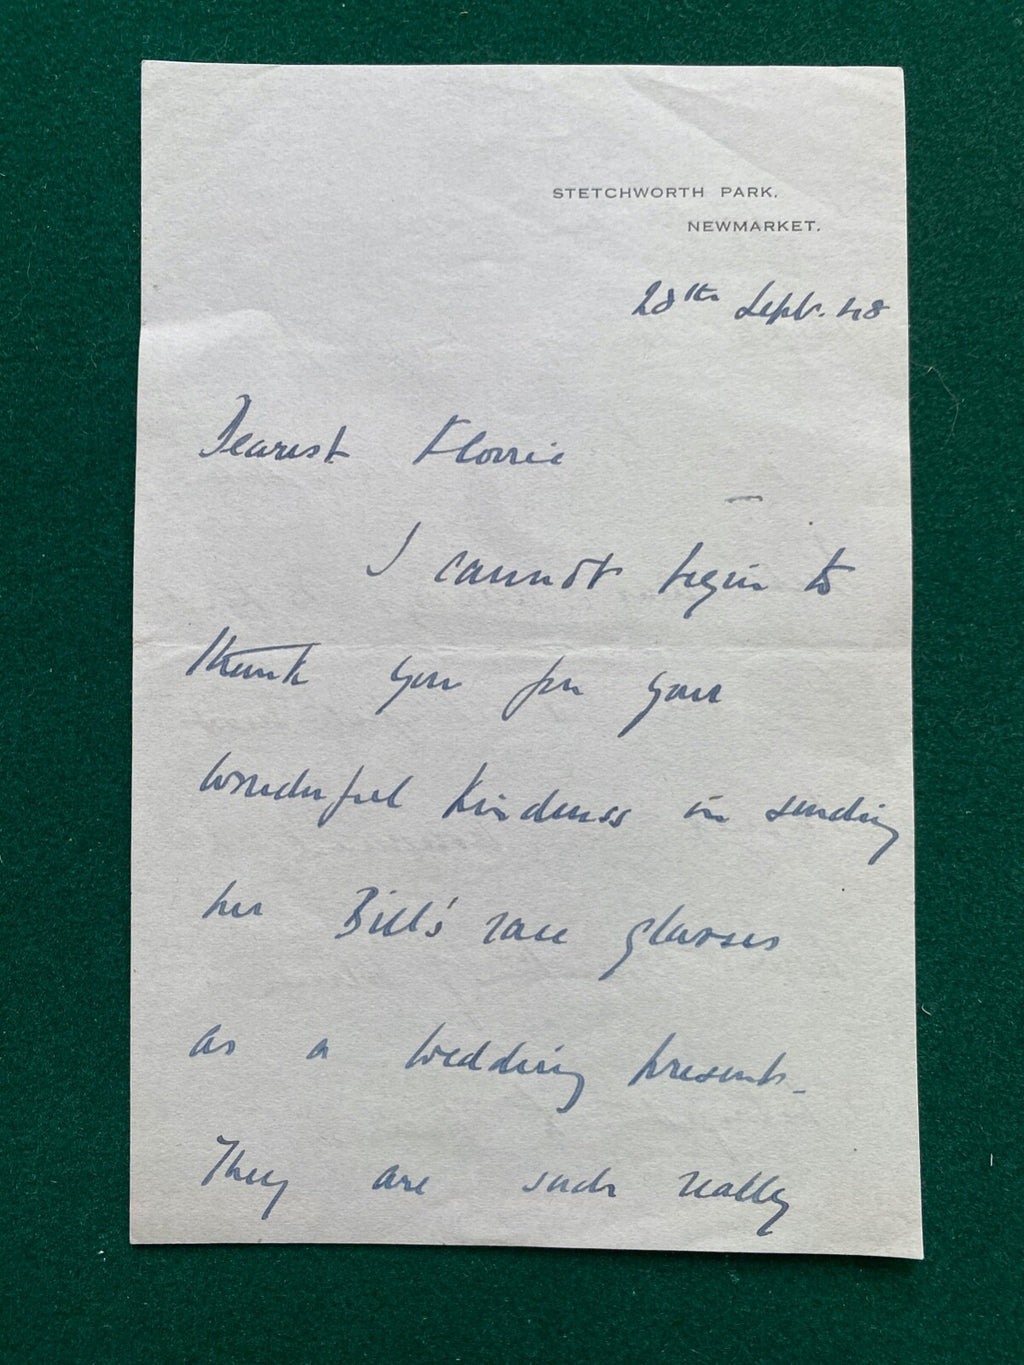 STETCHWORTH PARK.
NEWMARKET.
28th Sept. 48
Dearest Florrie
I cannot begin to
thank you for your
wonderful kindness in sending
me Bill's race glasses
as a wedding present.
They are such really